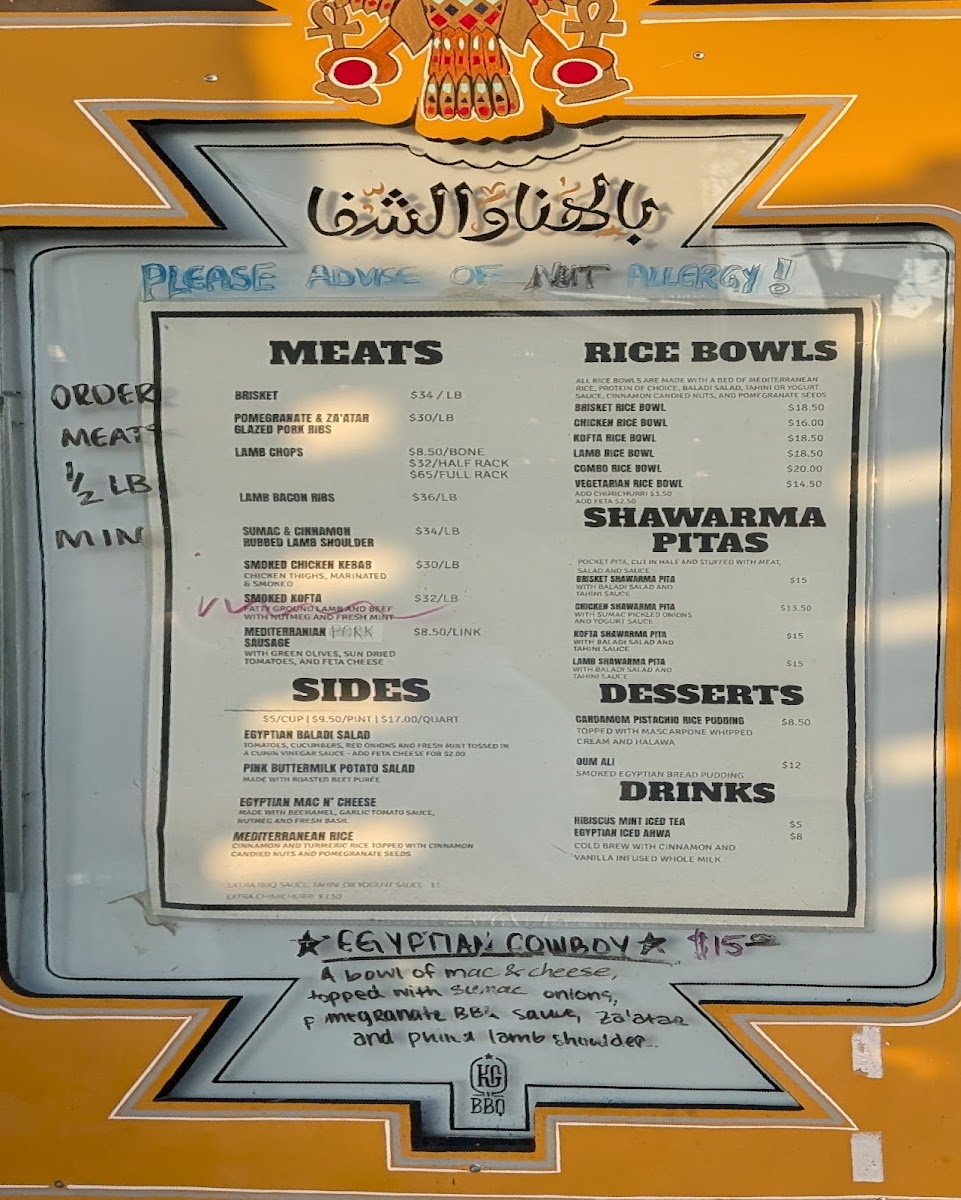 بالهنا والشفا
PLEASE ADVISE OF NUT ALLERGY!
ORDER
MEATS
1/2 LB
MIN
MEATS
BRISKET $34 / LB
POMEGRANATE & ZA'ATAR $30/LB
GLAZED PORK RIBS
LAMB CHOPS $8.50/BONE
$32/HALF RACK
$65/FULL RACK
LAMB BACON RIBS $36/LB
SUMAC & CINNAMON $34/LB
RUBBED LAMB SHOULDER
SMOKED CHICKEN KEBAB $30/LB
CHICKEN THIGHS, MARINATED
& SMOKED
SMOKED KOFTA $32/LB
FATTY GROUND LAMB AND BEEF
WITH NUTMEG AND FRESH MINT
MEDITERRANIAN PORK $8.50/LINK
SAUSAGE
WITH GREEN OLIVES, SUN DRIED
TOMATOES, AND FETA CHEESE
SIDES
$5/CUP | $9.50/PINT | $17.00/QUART
EGYPTIAN BALADI SALAD
TOMATOES, CUCUMBERS, RED ONIONS AND FRESH MINT TOSSED IN
A CUMIN VINEGAR SAUCE - ADD FETA CHEESE FOR $2.00
PINK BUTTERMILK POTATO SALAD
MADE WITH ROASTED BEET PUREE
EGYPTIAN MAC N' CHEESE
MADE WITH BECHAMEL, GARLIC TOMATO SAUCE,
NUTMEG AND FRESH BASIL
MEDITERRANEAN RICE
CINNAMON AND TURMERIC RICE TOPPED WITH CINNAMON
CANDIED NUTS AND POMEGRANATE SEEDS
EXTRA BBQ SAUCE, TAHINI OR YOGURT SAUCE $1
EXTRA CHIMICHURRI $3.50
RICE BOWLS
ALL RICE BOWLS ARE MADE WITH A BED OF MEDITERRANEAN
RICE, PROTEIN OF CHOICE, BALADI SALAD, TAHINI OR YOGURT
SAUCE, CINNAMON CANDIED NUTS, AND POMEGRANATE SEEDS
BRISKET RICE BOWL $18.50
CHICKEN RICE BOWL $16.00
KOFTA RICE BOWL $18.50
LAMB RICE BOWL $18.50
COMBO RICE BOWL $20.00
VEGETARIAN RICE BOWL $14.50
ADD CHIMICHURRI $3.50
ADD FETA $2.50
SHAWARMA
PITAS
POCKET PITA, CUT IN HALF AND STUFFED WITH MEAT,
SALAD AND SAUCE
BRISKET SHAWARMA PITA $15
WITH BALADI SALAD AND
TAHINI SAUCE
CHICKEN SHAWARMA PITA $13.50
WITH SUMAC PICKLED ONIONS
AND YOGURT SAUCE
KOFTA SHAWARMA PITA $15
WITH BALADI SALAD AND
TAHINI SAUCE
LAMB SHAWARMA PITA $15
WITH BALADI SALAD AND
TAHINI SAUCE
DESSERTS
CARDAMOM PISTACHIO RICE PUDDING $8.50
TOPPED WITH MASCARPONE WHIPPED
CREAM AND HALAWA
OUM ALI $12
SMOKED EGYPTIAN BREAD PUDDING
DRINKS
HIBISCUS MINT ICED TEA $5
EGYPTIAN ICED AHWA $8
COLD BREW WITH CINNAMON AND
VANILLA INFUSED WHOLE MILK
EGYPTIAN COWBOY $15
A bowl of mac & cheese,
topped with sumac onions,
pomegranate BBQ sauce, za'atar
and lamb shoulder.
KG
BBQ